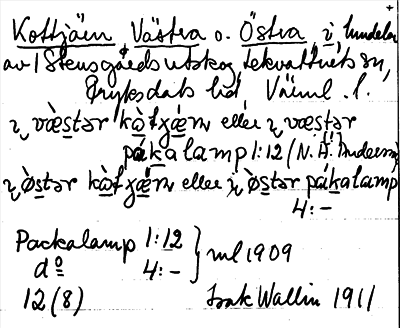 Kottjärn Västra o. Östra i hundelar
av 1 Stensgårds utskog Lekvattnets sn,
Fryksdals hd, Värml. l.
ı̨ væ̀stər kàtχæ̀rn eller ı̨ væstər
pákalamp 1:12 (N. A. Andersson)
ı̨ ø̀stər kàtχæ̀rn eller ı̨ ø̀stər pákalamp
4:-
Packalamp 1:12 } ml 1909
do 4:-
12 (8) Isak Wallin 1911